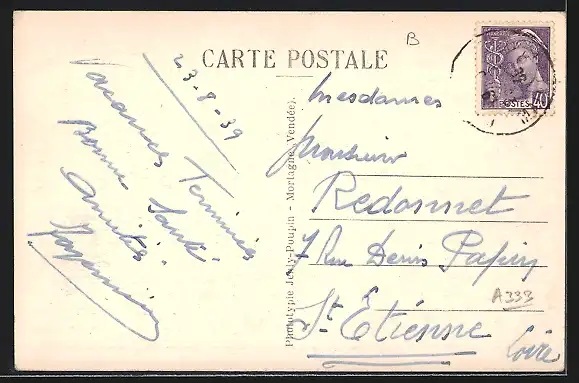 CARTE POSTALE
B
23-8-39
Vacances Terminées
Bonne Santé
Amitiés
Mesdames
Monsieur
Redonnet
7 Rue Denis Papin
St. Etienne
Loire
A333
POSTES 40
Phototypie Jehly-Poupin - Mortagne (Vendée).